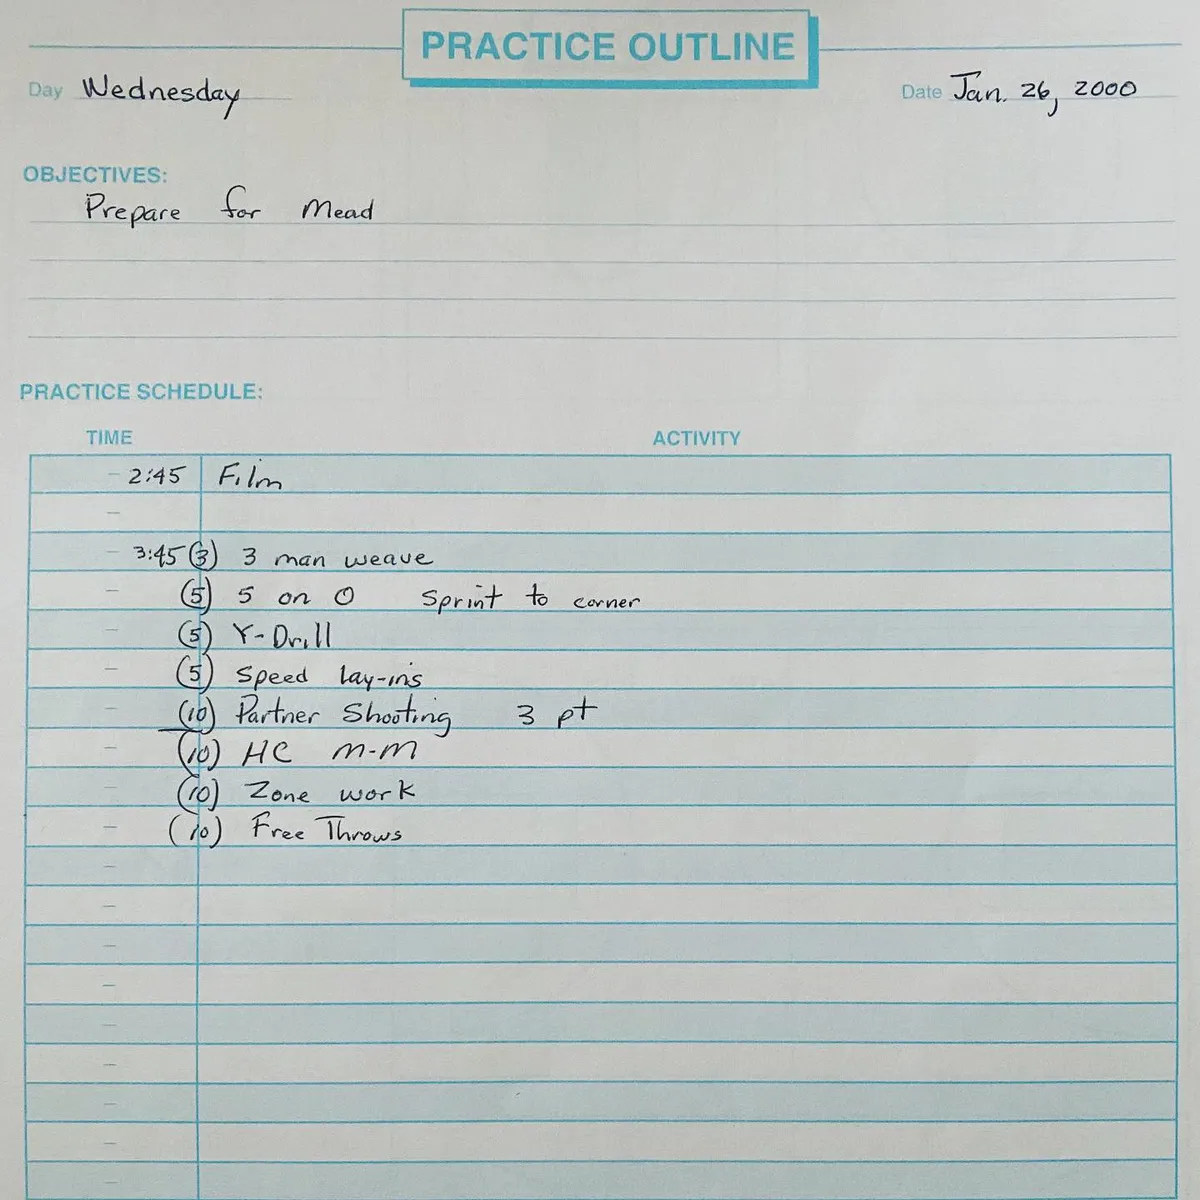 PRACTICE OUTLINE
Day Wednesday Date Jan. 26, 2000
OBJECTIVES:
Prepare for Mead
PRACTICE SCHEDULE:
TIME ACTIVITY
- 2:45 Film
-
- 3:45 (3) 3 man weave
- (5) 5 on 0 Sprint to corner
- (5) Y-Drill
- (5) Speed lay-ins
- (10) Partner Shooting 3 pt
- (10) HC m-m
- (10) Zone work
- (10) Free Throws
-
-
-
-
-
-
-
-
-